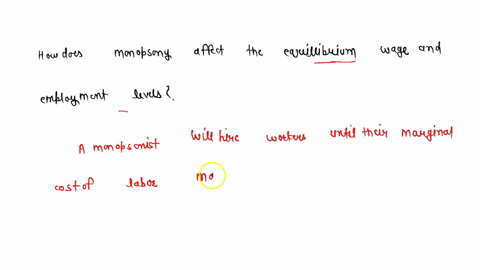 How does monopsony affect the equillibrium wage and
employment levels?.
A monopsonist will hire workers until their marginal
cost of labor mo